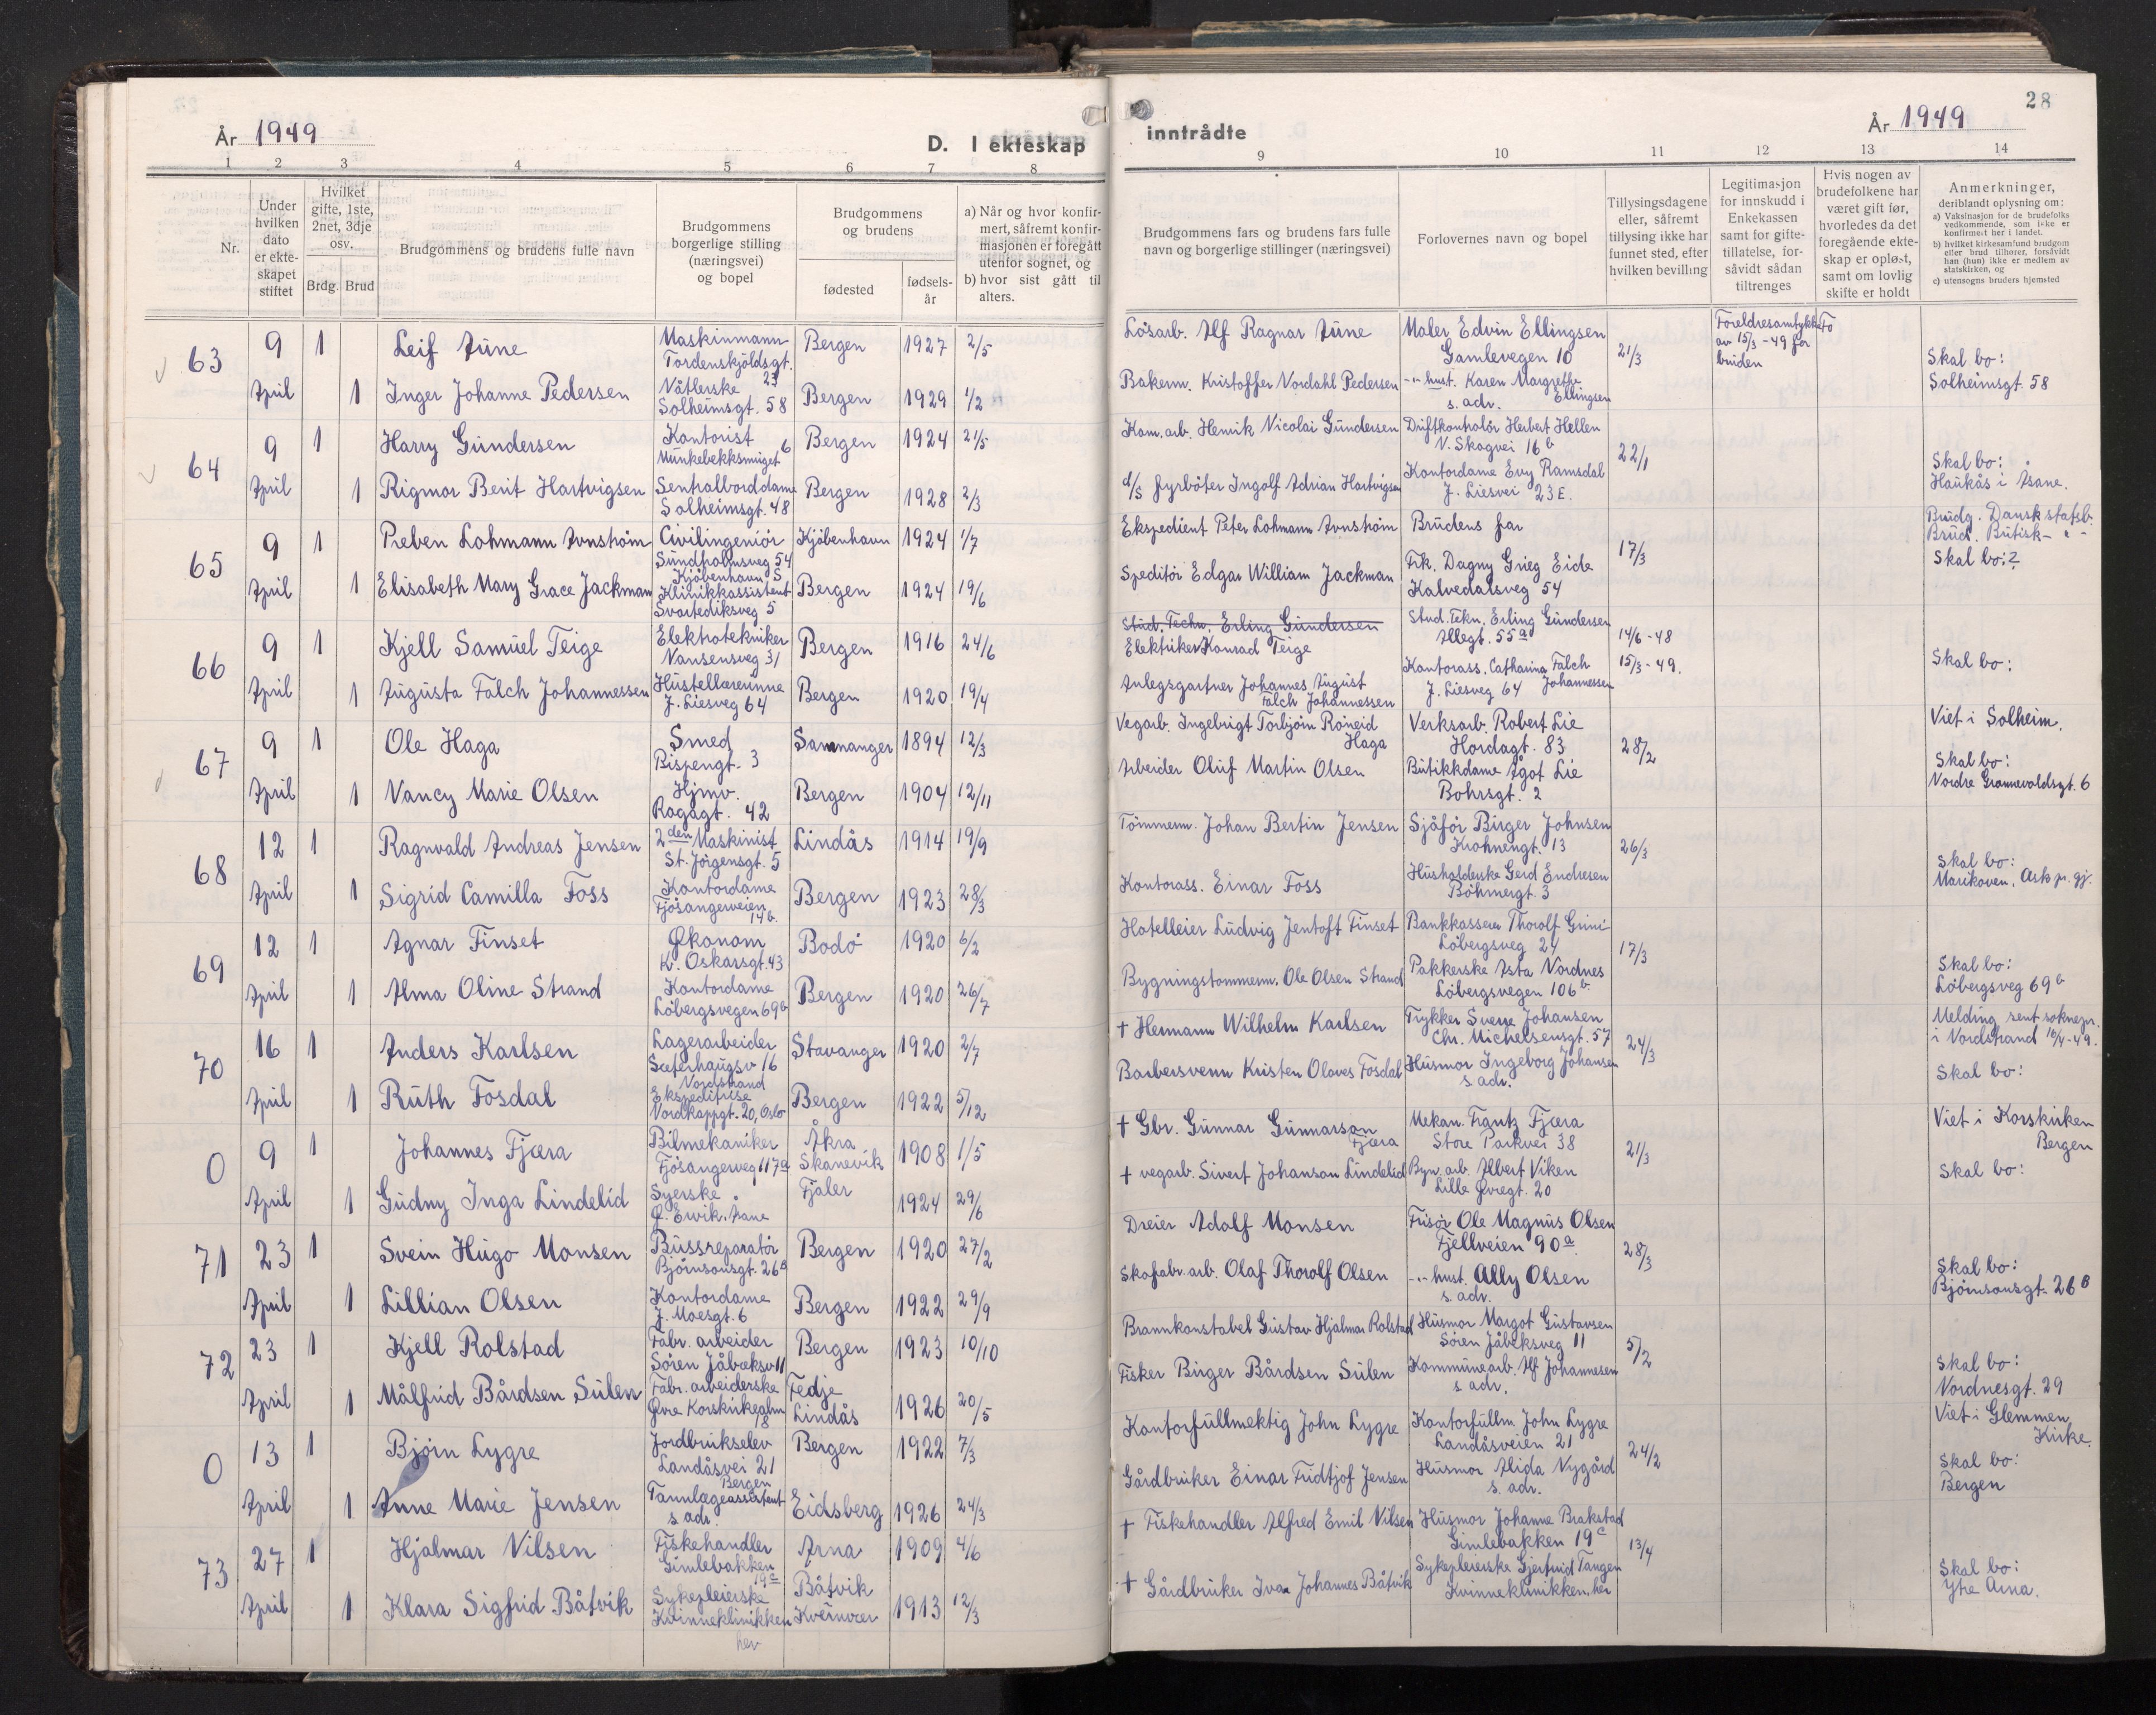 År 1949
D. I ekteskap
1 2 3 4 5 6 7 8
Nr.
Under hvilken dato er ekteskapet stiftet
Hvilket gifte, 1ste, 2net, 3dje osv.
Brdg. Brud
Brudgommens og brudens fulle navn
Brudgommens borgerlige stilling (næringsvei) og bopel
Brudgommens og brudens
fødested
fødselsår
a) Når og hvor konfirmert, såfremt konfirmasjonen er foregått utenfor sognet, og
b) hvor sist gått til alters.
63 9 1 Leif Aune Maskinmann Tordenskjoldsgt. 23 Bergen 1927 2/5
April 1 Inger Johanne Pedersen Nåtlerske Solheimsgt. 58 Bergen 1929 1/2
64 9 1 Harry Gundersen Kontorist Munkebekksmuget 6 Bergen 1924 21/5
April 1 Rigmor Berit Hartvigsen Sentralborddame Solheimsgt. 48 Bergen 1928 2/3
65 9 1 Preben Lohmann Arnstrøm Civilingeniør Sundholmsveg 54 Kjøbenhavn S Kjøbenhavn 1924 1/7
April 1 Elisabeth Mary Grace Jackman Klinikkassistent Svartediksveg 5 Bergen 1924 19/6
66 9 1 Kjell Samuel Teige Elektrotekniker Nansensveg 31 Bergen 1916 24/6
April 1 Augusta Falch Johannessen Hustellærerinne J. Liesveg 64 Bergen 1920 19/4
67 9 1 Ole Haga Smed Bispengt. 3 Samnanger 1894 12/3
April 1 Nancy Marie Olsen Hjmv. Ragagt. 42 Bergen 1904 12/11
68 12 1 Ragnvald Andreas Jensen 2den Maskinist St. Jørgensgt. 5 Lindås 1914 19/9
April 1 Sigrid Camilla Foss Kontordame Fjøsangerveien 14b. Bergen 1923 28/3
69 12 1 Agnar Finset Økonom K. Oskarsgt. 43 Bodø 1920 6/2
April 1 Alma Oline Strand Kontordame Løbergsvegen 69b Bergen 1920 26/7
70 16 1 Anders Karlsen Lagerarbeider Sæterhaugsv 16 Nordstrand Stavanger 1920 2/7
April 1 Ruth Fosdal Ekspeditrise Nordkappgt. 20, Oslo Bergen 1922 5/12
0 9 1 Johannes Fjæra Bilmekaniker Fjøsangerveg 117a Åkra Skånevik 1908 1/5
April 1 Gudny Inga Lindelid Syerske Ø. Ervik. Åsane Fjaler 1924 29/6
71 23 1 Svein Hugo Monsen Bussreparatør Bjørnsonsgt. 26B Bergen 1920 27/2
April 1 Lillian Olsen Kontordame J. Moesgt. 6 Bergen 1922 29/9
72 23 1 Kjell Rolstad Fabr. arbeider Søren Jåbæksv 11 Bergen 1923 10/10
April 1 Målfrid Bårdsen Sulen Fabr. arbeiderske Øvre Korskirkealm 18 Fedje Lindås 1926 20/5
0 13 1 Bjørn Lygre Jordbrukselev Landåsvei 21 Bergen Bergen 1922 7/3
April 1 Anne Marie Jensen Tannlægeassistent s adr. Eidsberg 1926 24/3
73 27 1 Hjalmar Nilsen Fiskehandler Gimlebakken 19c Arna 1909 4/6
April 1 Klara Sigfrid Båtvik Sykepleierske Kvinneklinikken her Båtvik Kvernvær 1913 12/3
28
inntrådte
År 1949
9 10 11 12 13 14
Brudgommens fars og brudens fars fulle navn og borgerlige stillinger (næringsvei)
Forlovernes navn og bopel
Tillysingsdagene eller, såfremt tillysing ikke har funnet sted, efter hvilken bevilling
Legitimasjon for innskudd i Enkekassen samt for giftetillatelse, forsåvidt sådan tiltrenges
Hvis nogen av brudefolkene har været gift før, hvorledes da det foregående ekteskap er opløst, samt om lovlig skifte er holdt
Anmerkninger, deriblandt oplysning om:
a) Vaksinasjon for de brudefolks vedkommende, som ikke er konfirmert her i landet.
b) hvilket kirkesamfund brudgom eller brud tilhører, forsåvidt han (hun) ikke er medlem av statskirken, og
c) utensogns bruders hjemsted
Løsarb. Alf Ragnar Aune Maler Edvin Ellingsen Gamlevegen 10 21/3 Foreldresamtykke Fo av 15/3-49 for bruden Skal bo:
Bakerm. Kristoffer Nordahl Pedersen -"- hust. Karen Margrethe Ellingsen s. adr. Solheimsgt. 58
Kom. arb. Henrik Nicolai Gundersen Driftkontrolør Herbert Hellen N. Skogvei 16b 22/1 Skal bo:
d/s fyrbøter Ingolf Adrian Hartvigsen Kontordame Evy Ramsdal J. Liesvei 23E. Haukås i Åsane.
Ekspedient Peter Lohmann Arnstrøm Brudens far 17/3 Brudg. Dansk statsb. Brud. Britisk - " -
Speditør Edgar William Jackman Frk. Dagny Grieg Eide Kalvedalsveg 54 Skal bo: ?
Stud. Techn. Erling Gundersen
Elektriker Konrad Teige Stud. Tekn. Erling Gundersen Allegt. 55a 14/6-48 15/3-49. Skal bo:
Anlegsgartner Johannes August Falch Johannessen Kontorass. Catharina Falch Johannessen J. Liesveg 64
Vegarb. Ingebrigt Torbjørn Røneid Haga Verksarb. Robert Lie Hordagt. 83 28/2 Viet i Solheim.
Arbeider Oluf Martin Olsen Butikkdame Ågot Lie Bohrsgt. 2 Skal bo: Nordre
Tømmerm. Johan Bertin Jensen Sjåfør Birger Johnsen Krohnengt. 13 26/3 Skal bo:
Kontorass. Einar Foss Husholderske Gerd Endresen Bøhmergt. 3 Marikoven, Ask pr. gj.
Hotelleier Ludvig Jentoft Finset Bankkasserer Thorolf Løbergsveg 24 17/3 Skal bo:
Bygningstømmerm. Ole Olsen Strand Pakkerske Asta Nordnes Løbergsvegen 106b. Løbergsveg 69b
† Hermann Wilhelm Karlsen Trykker Sverre Johansen Chr. Michelsensgt. 57 24/3 Melding sent soknepr. i Nordstrand 16/4-49.
Barbersvenn Kristen Olaves Fosdal Husmor Ingeborg Johansen s adr. Skal bo:
† Gbr. Gunnar Gunnarson Fjæra Mekan. Frantz Fjæra Store Parkvei 38 21/3 Viet i Korskirken Bergen
† vegarb. Sivert Johanson Lindelid Byn. arb. Albert Viken Lille Øvregt. 20 Skal bo:
Dreier Adolf Monsen Frisør Ole Magnus Olsen Fjellveien 90a. 28/3 Skal bo:
Skofabr. arb. Olaf Thorolf Olsen -"- hust. Ally Olsen s. adr. Bjørnsonsgt. 26B
Brannkonstabel Gustav Hjalmar Rolstad Husmor Margot Gustavsen Søren Jåbeksveg 11 5/2 Skal bo:
Fisker Birger Bårdsen Sulen Kommunearb. Alf Johannesen s adr. Nordnesgt. 29
Kontorfullmektig John Lygre Kontorfullm. John Lygre Landåsveien 21 24/2 Viet i Glemmen Kirke.
Gårdbruker Einar Fridtjof Jensen Husmor Alida Nygård s. adr. Skal bo: Bergen
† Fiskehandler Alfred Emil Nilsen Husmor Johanne Brakstad Gimlebakken 19c 13/4 Skal bo:
† Gårdbruker Ivar Johannes Båtvik Sykepleierske Gjertrud Tangen Kvinneklinikken, her Ytre Arna.